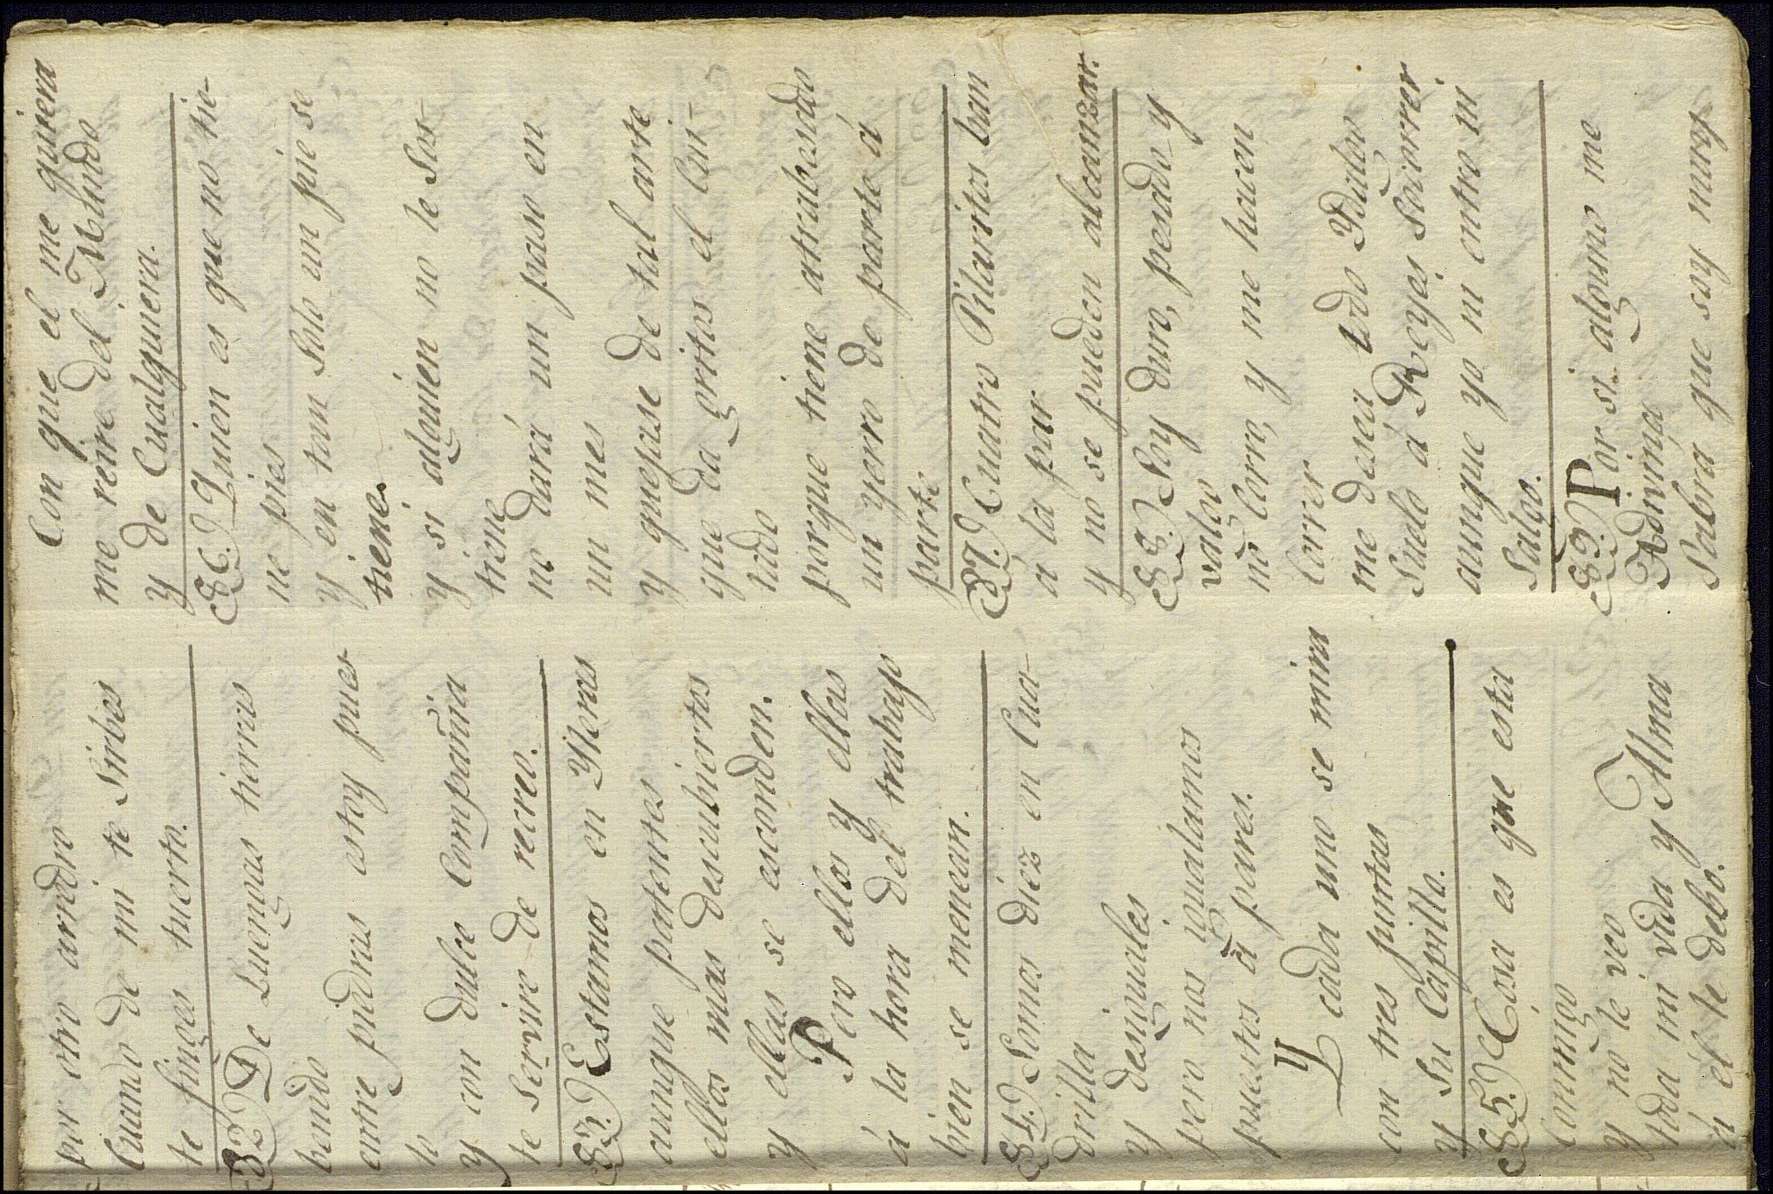 por otro arredro
Cuando de mi te Sirbes
te finges tuerto.
82) De Luengas tierras
bando
entre piedras estoy pues
to
y con dulce Compañia
te Servire de recreo.
83.) Estamos en Yleras
aunque patentes
ellos mas descubiertos
y ellas se esconden.
Pero ellos y ellas
á la hora del trabajo
bien se menean.
84.) Somos diez en Cua-
drilla
y desiguales
pero nos igualamos
puestos á pares.
Y cada uno se mira
con tres puntas
y Su Capilla.
85.) Cosa es que esta
Conmigo
y no le veo
toda mi vida y Alma
á él le debo.
Con que el me quiera
me reire del Mundo
y de Cualquiera.
86.) Quien es que no tie-
ne pies
y en tan Solo un pie se
tiene.
y si alguien no le Sos-
tiene
no dará un paso en
un mes
y quepase de tal arte
que da gritos el Cui-
tado
porque tiene atrabesado
un yerro de parte á
parte
87.) Cuatro Pilaritos ban
a la par
y no se pueden alcansar.
88.) Soy duro, pesado y
valgo
no Corro, y me hacen
Correr
me desea todo Ydalgo
Suelo á Reyes Socorrer
aunque yo ni entro ni
Salgo.
89.) Por si alguno me
Adivina
Sabrá que soy muy